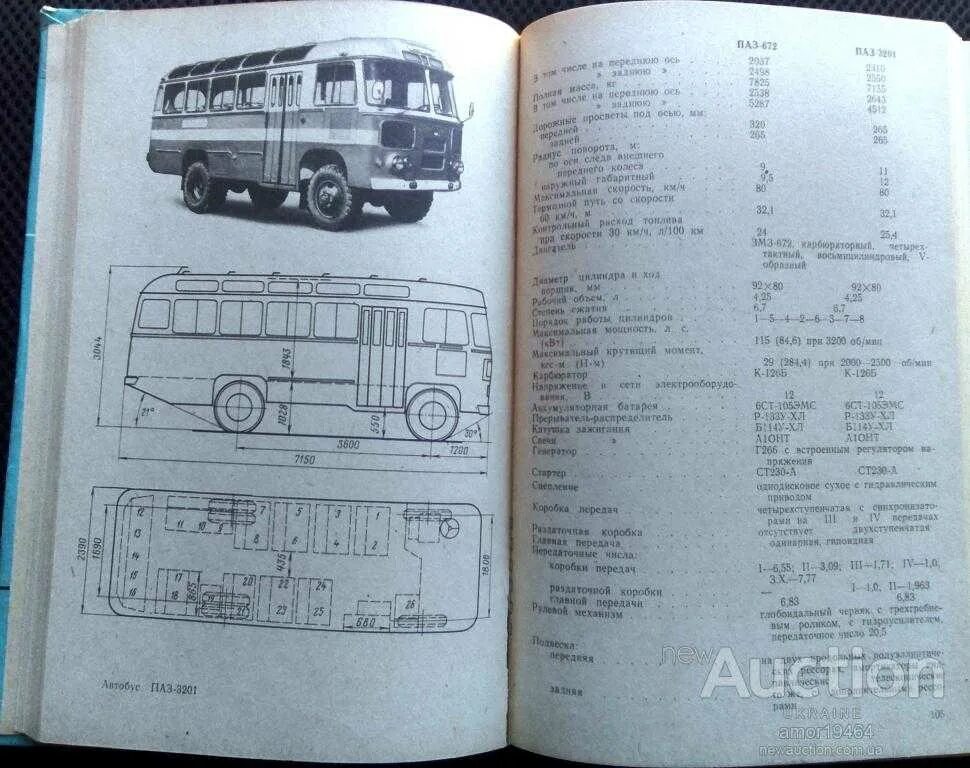 3044
1843
1028
550
21°
30°
3600
1200
7150
2390
1890
12
11
10
9
7
5
3
1
13
8
6
4
2
14
435
1800
15
17
865
20
22
24
16
18
19
21
23
25
26
660
Автобус ПАЗ-3201
ПАЗ-672 ПАЗ-3201
В том числе на переднюю ось 2057 2410
» заднюю » 2498 2550
Полная масса, кг 7825 7155
В том числе на переднюю ось 2538 2643
» заднюю » 5287 4512
Дорожные просветы под осью, мм:
передней 320 265
задней 265 265
Радиус поворота, м:
по оси следа внешнего
переднего колеса 9 11
наружный габаритный 9,5 12
Максимальная скорость, км/ч 80 80
Тормозной путь со скорости
60 км/ч, м 32,1 32,1
Контрольный расход топлива
при скорости 30 км/ч, л/100 км 24 25,4
Двигатель ЗМЗ-672, карбюраторный, четырех-
тактный, восьмицилиндровый, V-
образный
Диаметр цилиндра и ход
поршня, мм 92×80 92×80
Рабочий объем, л 4,25 4,25
Степень сжатия 6,7 6,7
Порядок работы цилиндров 1—5—4—2—6—3—7—8
Максимальная мощность, л. с.
(кВт) 115 (84,6) при 3200 об/мин
Максимальный крутящий момент,
кгс·м (Н·м) 29 (284,4) при 2000—2500 об/мин
Карбюратор К-126Б К-126Б
Напряжение в сети электрооборудо-
вания, В 12 12
Аккумуляторная батарея 6СТ-105ЭМС 6СТ-105ЭМС
Прерыватель-распределитель Р-133У-ХЛ Р-133У-ХЛ
Катушка зажигания Б114У-ХЛ Б114У-ХЛ
Свечи » А10НТ А10НТ
Генератор Г266 с встроенным регулятором на-
пряжения
Стартер СТ230-А СТ230-А
Сцепление однодисковое сухое с гидравлическим
приводом
Коробка передач четырехступенчатая с синхронизато-
рами на III и IV передачах
Раздаточная коробка отсутствует двухступенчатая
Главная передача одинарная, гипоидная
Передаточные числа:
коробки передач I—6,55; II—3,09; III—1,71; IV—1,0,
З.Х.—7,77
раздаточной коробки — I—1,0, II—1,963
главной передачи 6,83 6,83
Рулевой механизм глобоидальный червяк с трехгребне-
вым роликом, с гидроусилителем,
передаточное число 20,5
Подвеска:
передняя на двух продольных полуэллиптиче-
ских рессорах,
задняя то же, рессо-
рами
105
newAuction
UKRAINE
amor19464
newauction.com.ua